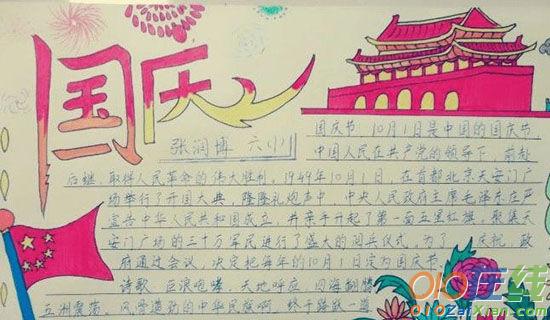 国庆
张润博 六（1）
国庆节，10月1日是中国的国庆节，
中国人民在共产党的领导下，前赴
后继，取得人民革命的伟大胜利，1949年10月1日，在首都北京天安门广
场举行了开国大典，隆隆礼炮声中，中央人民政府主席毛泽东庄严
宣告中华人民共和国成立，并亲手升起了第一面五星红旗，聚集天
安门广场的三十万军民进行了盛大的阅兵仪式，为了 庆祝，政
府通过会议，决定把每年的10月1日定为国庆节。
诗歌，巨浪咆哮，天地呼应，四海翻腾
五洲震荡，风雷激动的中华民族啊
010在线
ZaiXian.com